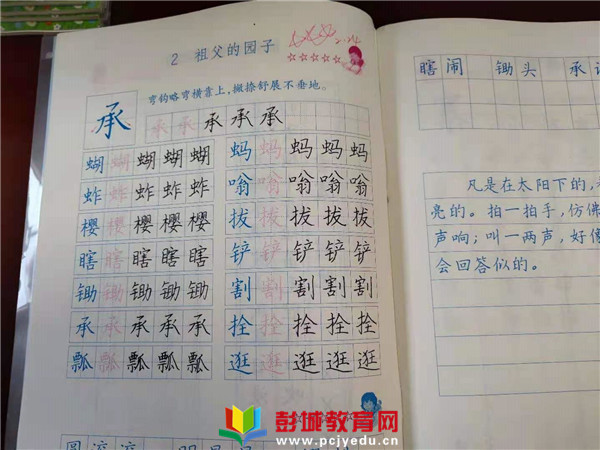 2 祖父的园子
弯钩略弯横靠上，撇捺舒展不垂地。
承 承 承 承 承 承
蝴 蝴 蝴 蝴 蝴 蚂 蚂 蚂 蚂 蚂
蚱 蚱 蚱 蚱 蚱 嗡 嗡 嗡 嗡 嗡
樱 樱 樱 樱 樱 拔 拔 拔 拔 拔
瞎 瞎 瞎 瞎 瞎 铲 铲 铲 铲 铲
锄 锄 锄 锄 锄 割 割 割 割 割
承 承 承 承 承 拴 拴 拴 拴 拴
瓢 瓢 瓢 瓢 瓢 逛 逛 逛 逛 逛
圆滚滚
瞎闹 锄头 承
凡是在太阳下的，
亮的。拍一拍手，仿佛
声响；叫一两声，好像
会回答似的。
彭城教育网
www.pcjyedu.cn